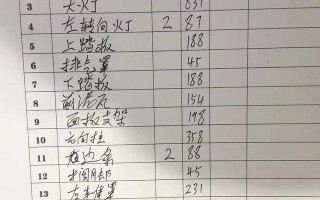 3 大灯 831
4 左转向灯 2 87
5 上踏板 188
6 排气罩 45
7 下踏板 188
8 前 154
9 面板支架 198
10 右 柱 358
11 边条 2 88
12 45
13 左 罩 231